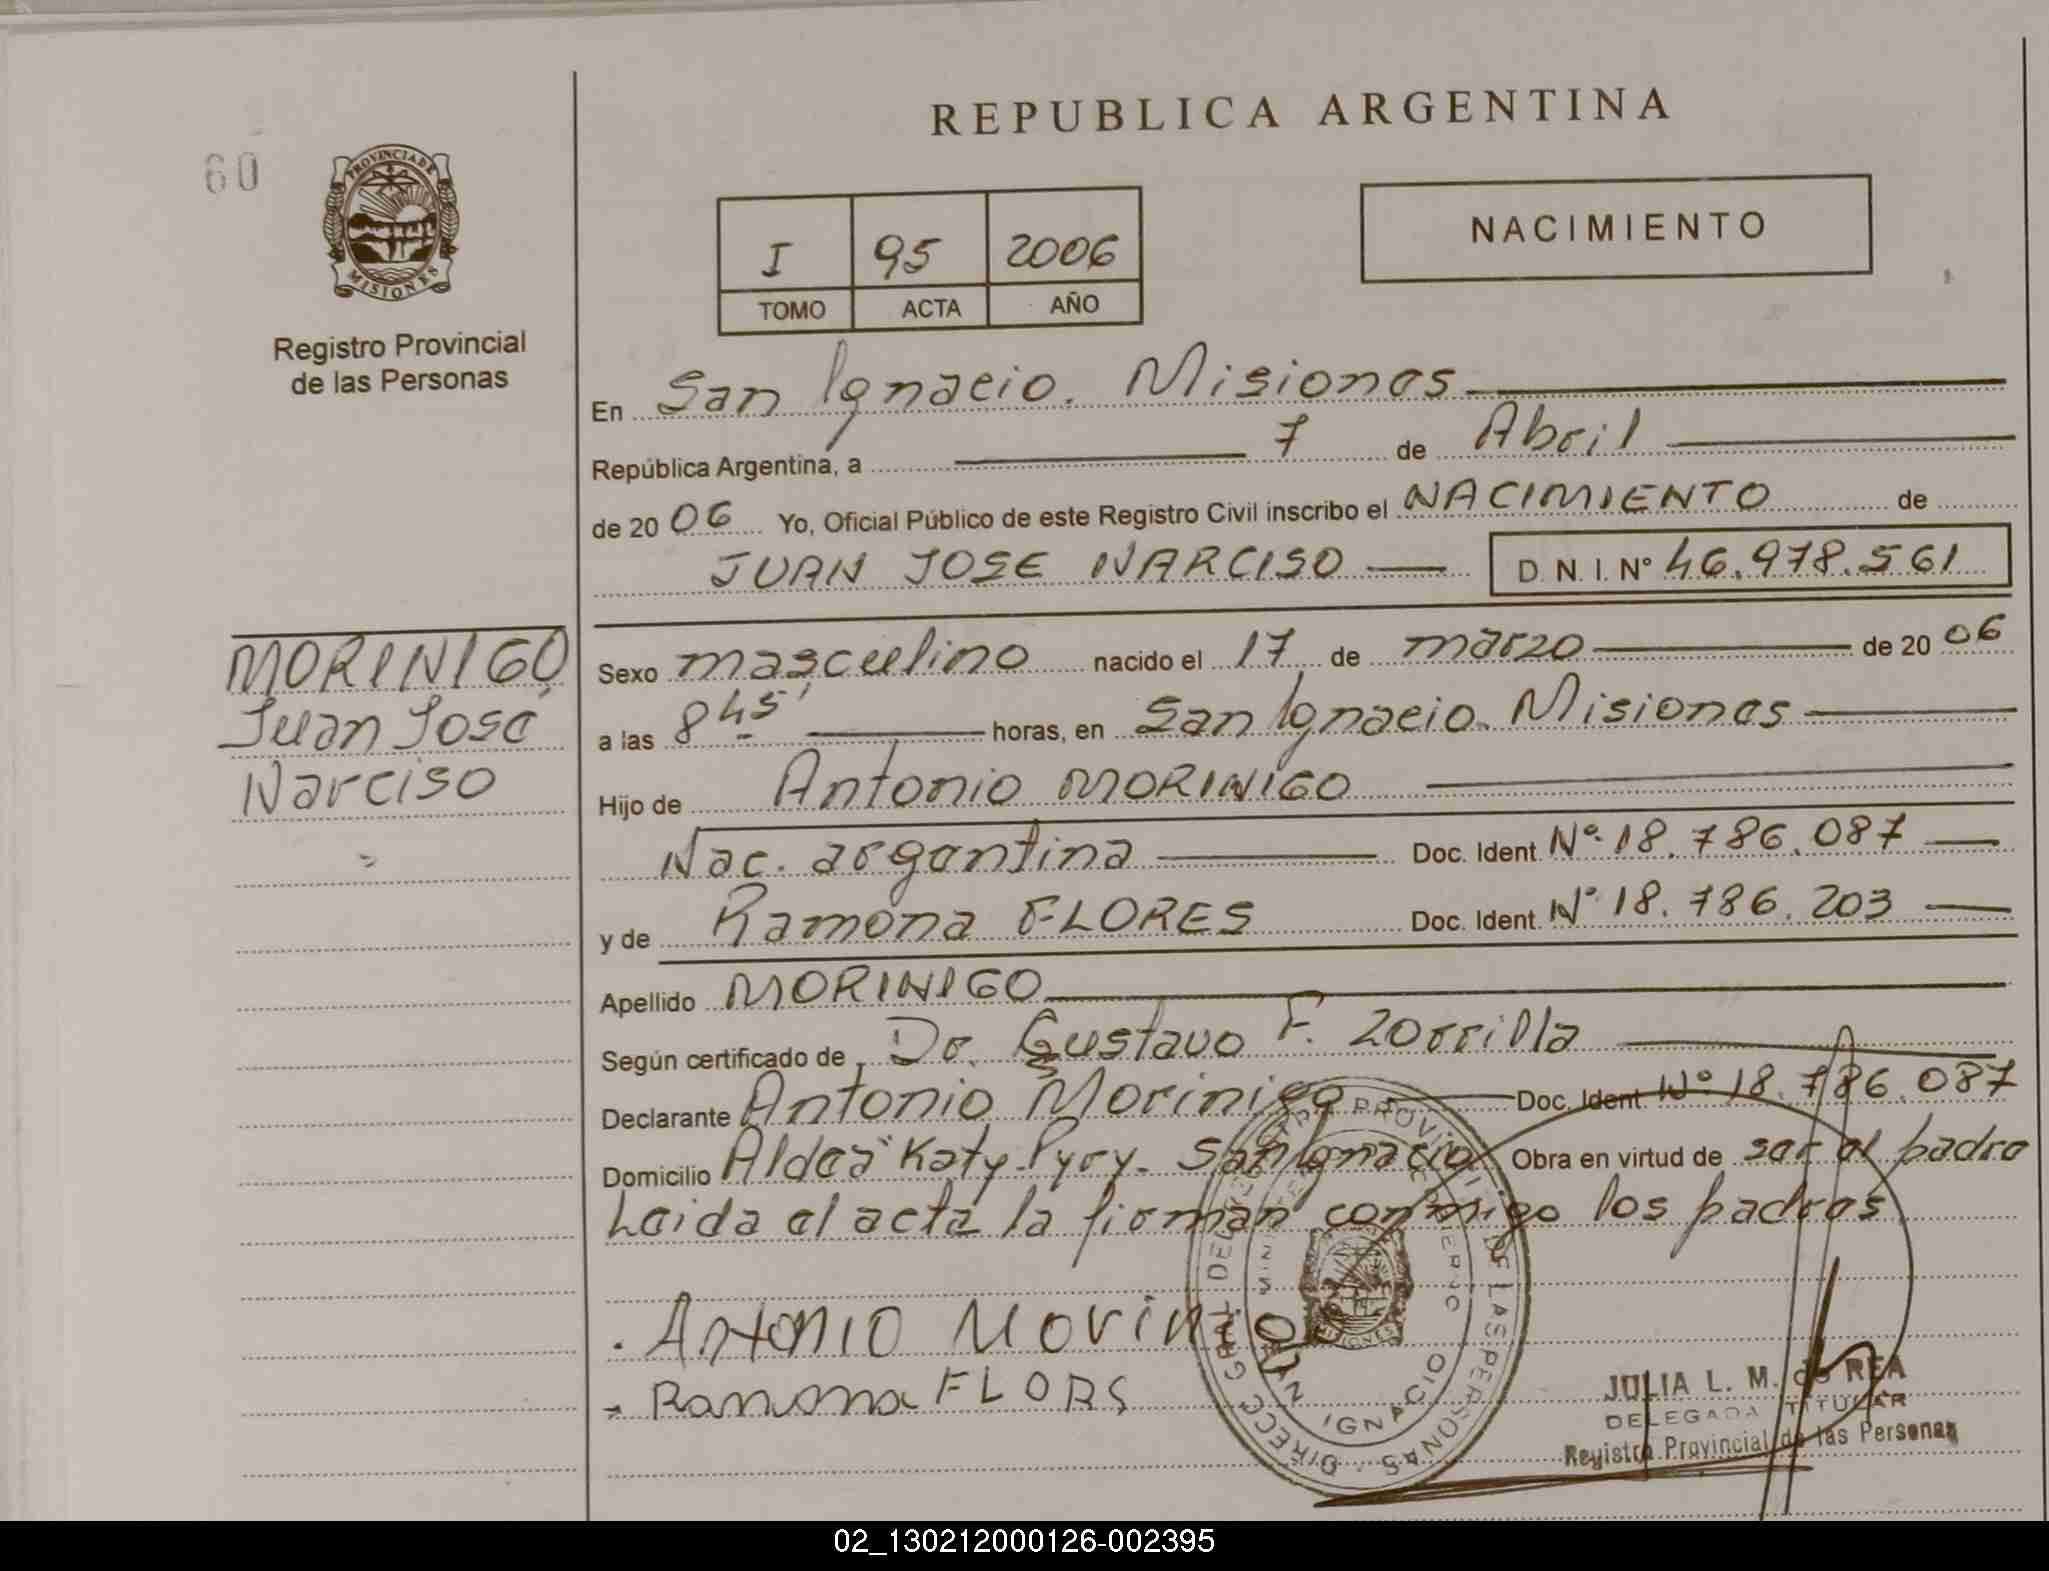 REPUBLICA ARGENTINA
60
PROVINCIA DE
MISIONES
Registro Provincial
de las Personas
NACIMIENTO
I 95 2006
TOMO ACTA AÑO
En San Ignacio. Misiones
República Argentina, a 7 de Abril
de 2006 Yo, Oficial Público de este Registro Civil inscribo el NACIMIENTO de
JUAN JOSE NARCISO D.N.I. Nº 46.978.561
MORINIGO
Juan José
Narciso
Sexo masculino nacido el 17 de marzo de 2006
a las 8 45' horas, en San Ignacio. Misiones
Hijo de Antonio MORINIGO
Nac. argentina Doc. Ident. Nº 18.786.087
y de Ramona FLORES Doc. Ident. Nº 18.786.203
Apellido MORINIGO
Según certificado de Dr. Gustavo F. Zorrilla
Declarante Antonio Morinigo Doc. Ident. Nº 18.786.087
Domicilio Aldea Katy-Pyry. San Ignacio Obra en virtud de ser el padre
Leida el acta la firman conmigo los padres
Antonio Morinigo
Ramona FLORS
IGNACIO
MISIONES
JULIA L. M. de REA
DELEGADA TITULAR
Registro Provincial de las Personas
02_130212000126-002395